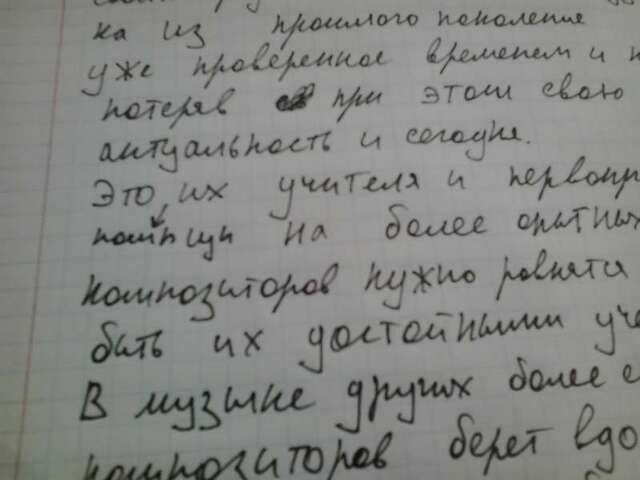 ка из прошлого поколение
уже проверенное временем и
потеряв при этом свою
актуальность и сегодня.
Это, их учителя и первопр
на более опытных
композиторов нужно ровнятся
быть их достойными уче
В музыке других более
композиторов берет вдо